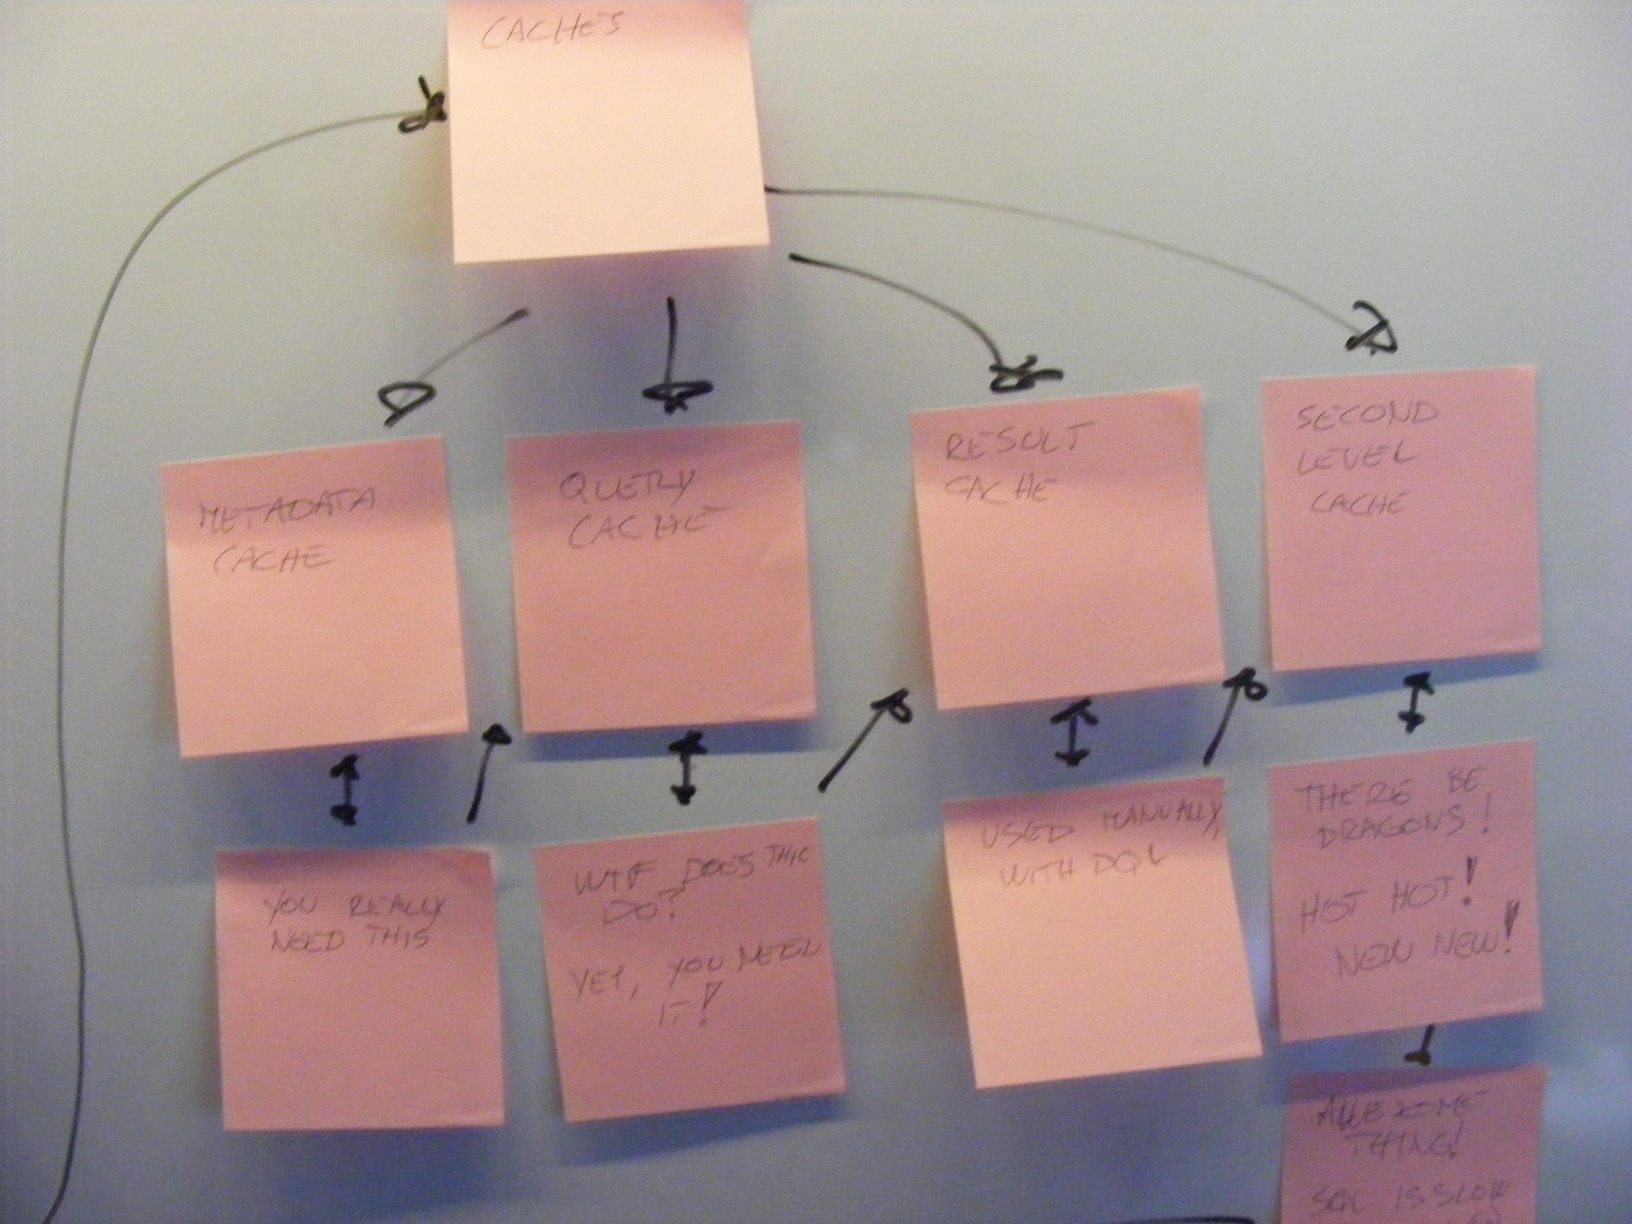 CACHES
METADATA
CACHE
QUERY
CACHE
RESULT
CACHE
SECOND
LEVEL
CACHE
YOU REALLY
NEED THIS
WTF DOES THIS
DO?
YET, YOU NEED
IT!
USED MANUALLY,
WITH DQL
THERE BE
DRAGONS!
HOT HOT!
NEW NEW!
AWESOME
THING!
SQL IS SLOW